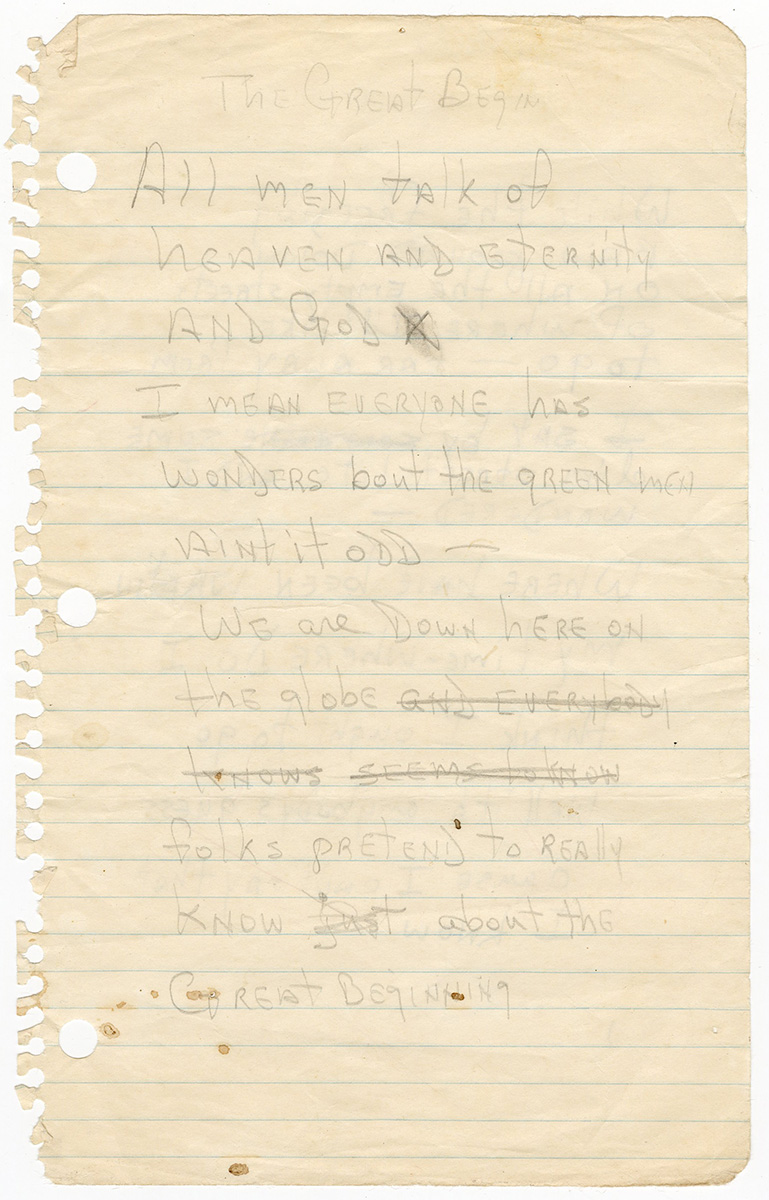 The Great Begin
All men talk of
heaven and eternity
and God
I mean everyone has
wonders bout the green men
aint it odd —
We are down here on
the globe and everybody
knows seems to know
folks pretend to really
know just about the
Great Beginning